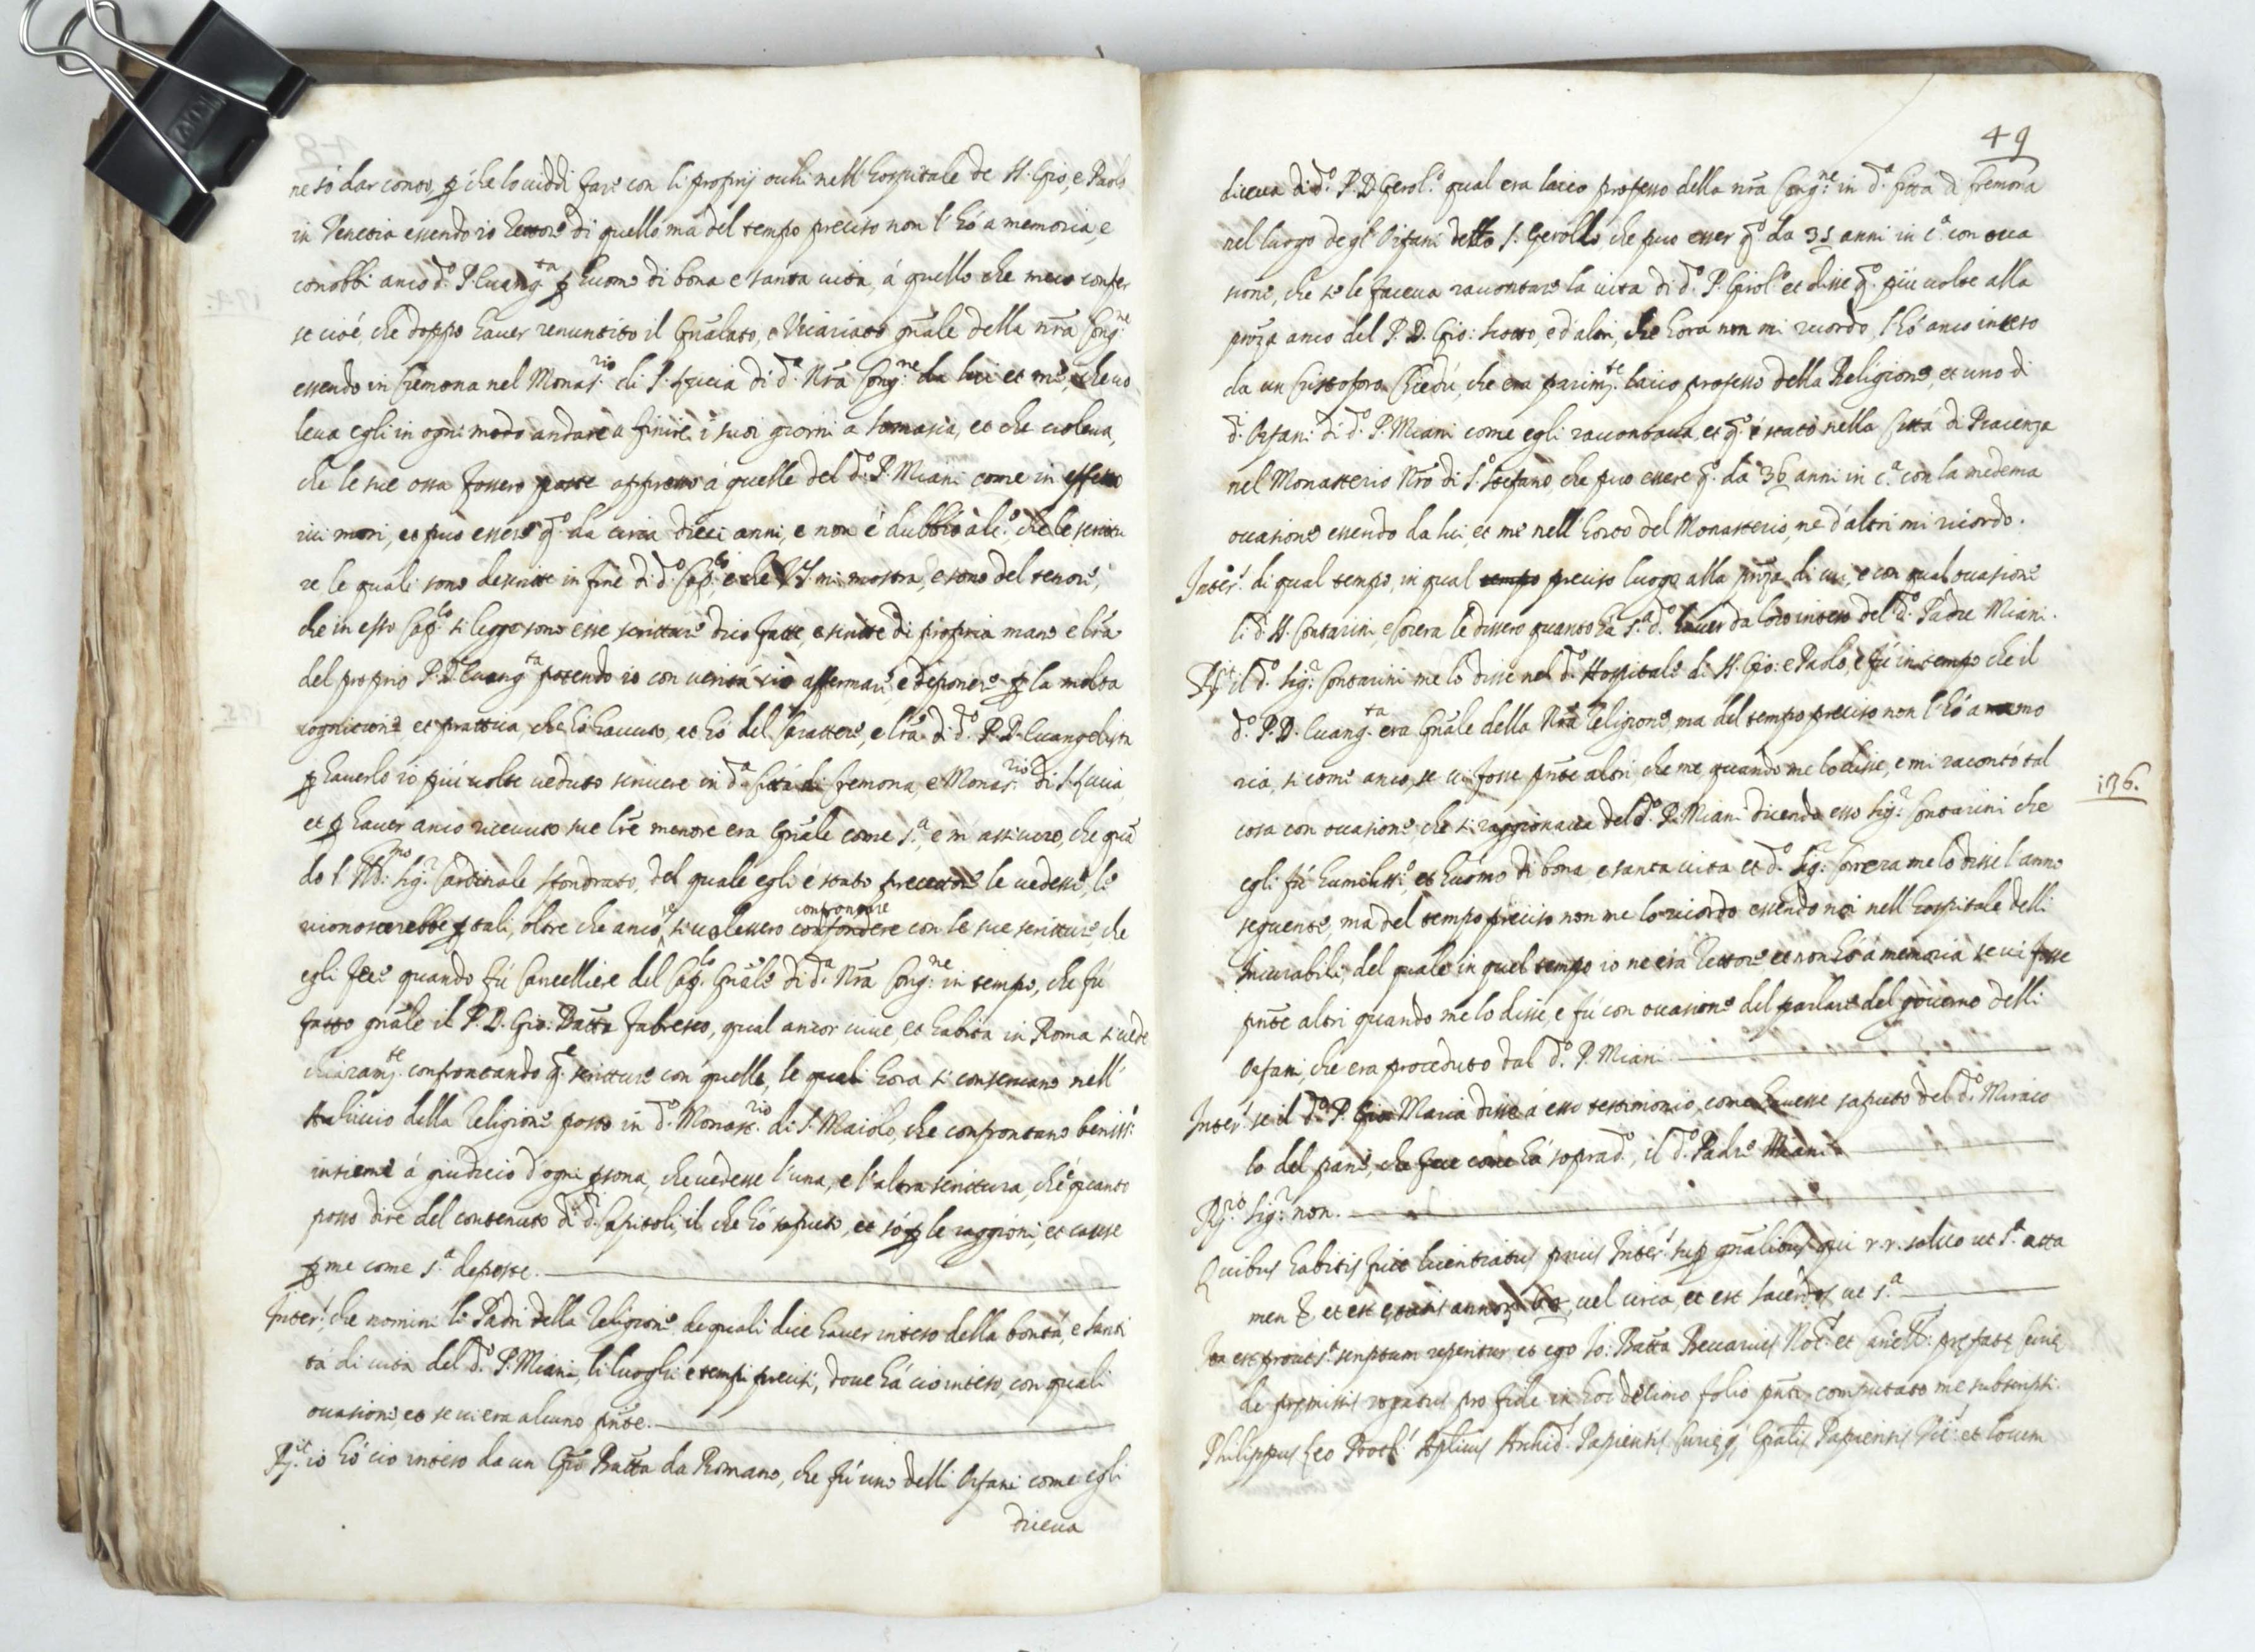 ne só dar conto, p che lo viddi fare con li proprij ochi nell'hospitale de SS. Gio, e Paolo
in Venetia essendo io Rettore di quello ma del tempo preciso non l'hó a memoria, e
conobbi anco d.º P. Euang.ta p huomo di bona e santa uita, á quello che meco confer
se cioé, che doppo hauer renuntito il Gñalato, e Vicariato gñale della nr̃a Cong.ne
essendo in Cremona nel Monas.rio di S. Lucia di d.ª Nr̃a Cong.ne da lui et me, che uo
leua egli in ogni modo andare a finire i suoi giorni a Somasca, et che uoleua,
che le sue ossa fossero poste appresso á quelle del d.º P. Miani come in effetto
iui morì, et puo essere q.º da circa dieci anni, e non é dubbio alc.º, che le scrittu
re le quali sono descritte in fine di d.º Cap.lo, e che V.S. mi mostra, e sono del tenore,
che in esso Cap.lo si legge sono esse scritture dico fatte, e scritte di propria mano e lr̃a
del proprio P. D. Euang.ta potendo io con uerità ciò affermare, e deponere p la molta
cognitione et prattica, che hó hauuto, et hó del Carattere, e lr̃a di d.º P. D. Euangelista
p hauerlo io piú uolte ueduto scriuere in d.ª Cittá di Cremona, e Monas.rio di S. Lucia,
et p hauer anco riceuuto sue lr̃e mentre era Gñale come s.ª, e m'assicuro, che quã
do l'Ill.mo Sig.r Cardinale Sfondrato, del quale egli é stato precettore le uedesse, le
riconoscerebbe p tali, oltre che anco se si uolessero confondere confrontare con le sue scritture, che
egli fece quando fú Cancelliere del Cap.lo Gñale di d.ª Nr̃a Cong.ne in tempo, che fú
fatto gñale il P. D. Gio: Batta Fabresco, qual ancor uiue, et habita in Roma si uede
chiaram.te confrontando q.e scritture con quelle, le quali hora si conseruano nell'
Archiuio della Religione posto in d.º Monast.rio di S. Maiolo, che confrontano beniss.º
insieme á giudicio d'ogni psona, che uedesse l'una, e l'altra scrittura, che é quanto
posso dire del contenuto di d.i Capitoli, il che hó saputo, et só p le raggioni, et cause
p me come s.ª deposte.
Inter.s che nomini li Padri della Religione de quali dice hauer inteso della bontá, e santi
tá di uita del d.º P. Miani, li luoghi e tempi precisi, doue há cio inteso, con quali
occasione, et se ui era alcuno pñte.
R.it io hó cio inteso da un Gio Batta da Romano, che fú uno delli Orfani come egli
diceua
49
diceua di d.º P. D. Gerol.º qual era laico professo della nr̃a Cong.ne in d.ª Città di Cremona
nel luogo degl'Orfani detto S. Geroldo, che puo esser q.º da 35 anni in c.ª con occa
sione, che se le faceua raccontare la uita di d.º P. Girol.º et disse q.º piú uolte alla
pnza anco del P. D. Gio: Scotto, e d'altri, che hora non mi ricordo, l'hó anco inteso
da un Cristoforo Chiedú, che era parim.te laico professo della Religione, et uno di
d.i Orfani di d.º P. Miani come egli raccontaua, et q.º é stato nella Città di Piacenza
nel Monasterio Nrõ di S.º Stefano, che puo essere q.º da 36 anni in c.ª con la medema
occasione essendo da lui, et me nell'horto del Monasterio, ne d'altri mi ricordo.
Inter.s di qual tempo, in qual tempo preciso luogo alla pnza di cui, e con qual occasione
li d.i SS. Contarini, e Correra le dissero quanto há s.ª d.º hauer da loro inteso del d.º Padre Miani.
R.it il d.º Sig.r Contarini me lo disse nel d.º Hospitale di SS. Gio: e Paolo, e fú in tempo che il
d.º P. D. Euang.ta era Gñale della Nr̃a Religione, ma del tempo preciso non l'hó a memo
ria, si come anco, se ui fosse pñte altri, che me, quando me lo disse, e mi racontó tal
cosa con occasione, che si raggionaua del d.º P. Miani dicendo esso Sig.r Contarini che
136.
egli fú humiliss.º, et huomo di bona, e santa uita et d.º Sig.r Correra me lo disse l'anno
seguente, ma del tempo preciso non me lo ricordo essendo noi nell'hospitale delli
Incurabili, del quale in quel tempo io ne era Rettore et non hó á memoria se ui fosse
pñte altri quando me lo disse, e fú con occasione del parlare del gouerno delli
Orfani, che era proceduto dal d.º P. Miani
Inter.s se il d.º P. Gio: Maria disse á esso testimonio, come hauesse saputo del d.º Miraco
lo del pane, che fece come há soprad.º, il d.º Padre Miani
R.it Sig.r non.
Quibus habitis fuit licentiatus prius Inter.s sup gñalibus qui r.r. saluo ut s.ª atta
men &, et est etatis annor 60, uel circa, et est sacerdos ut s.ª
Ita est prout s.ª scriptum reperitur, et ego Jo: Batta Beccarius Not.s et Cancell.s prefate Curie
de premissis rogatus pro fide in hoc decimo folio pñti computato me subscripsi.
Philippus Leo Proth.s Apl̃icus Archid.s Papiensis Curieq; Ep̃alis Papiensis Vic.s et locum